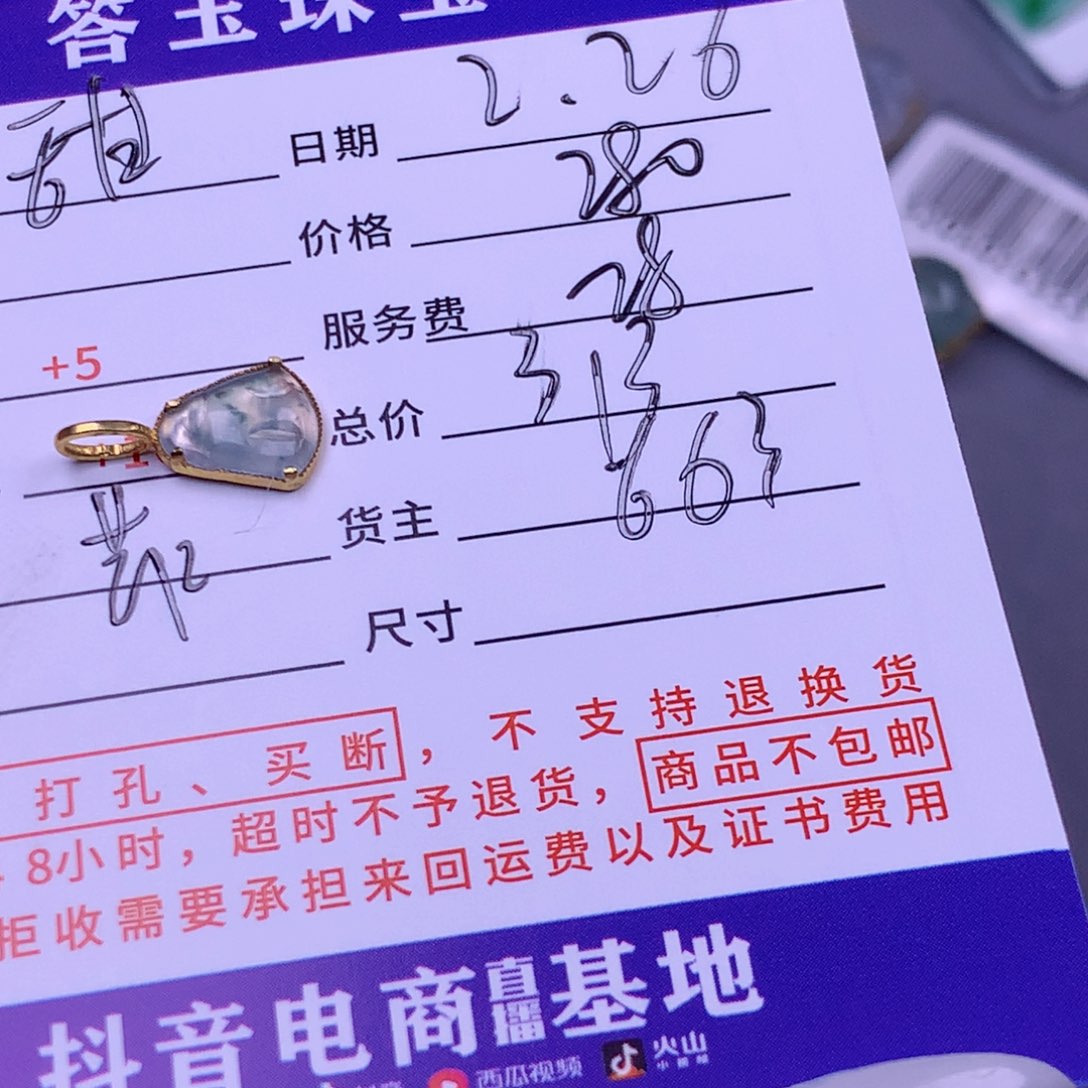 答玉珠宝
甜 日期 2.26
价格 280
服务费 28
+5
总价 313
货主 663
尺寸
打孔、买断，不支持退换货
8小时，超时不予退货，商品不包邮
拒收需要承担来回运费以及证书费用
抖音电商直播基地
西瓜视频 火山